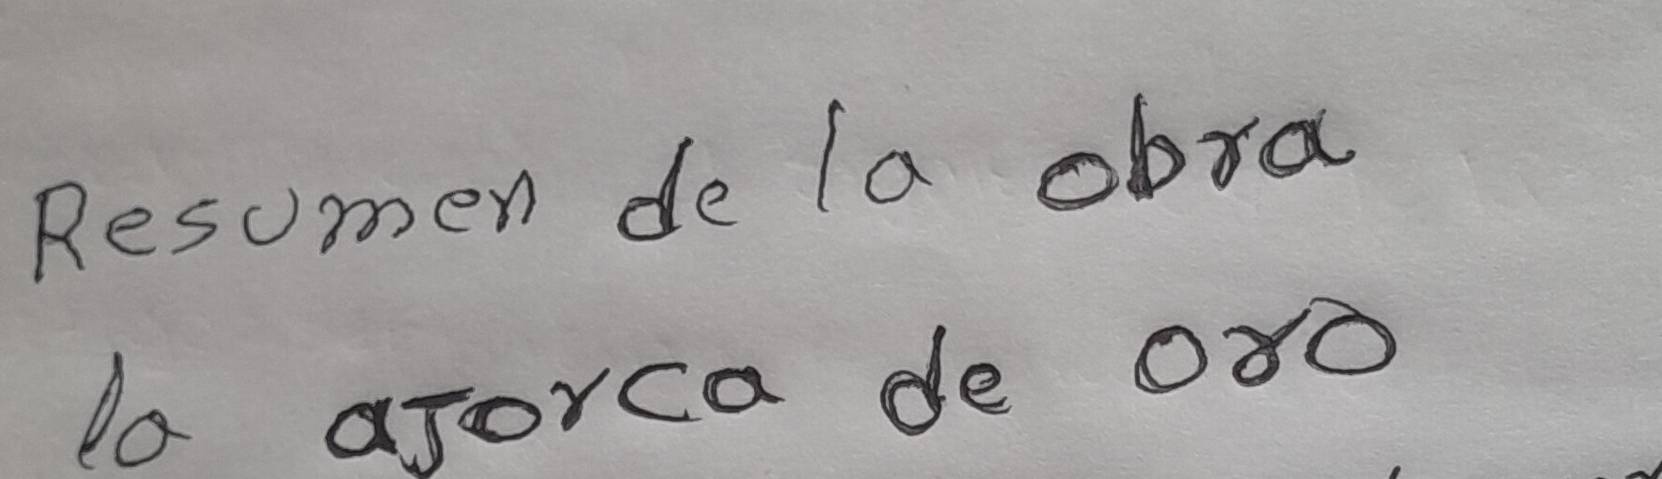 Resumen de la obra
la aJorca de oro